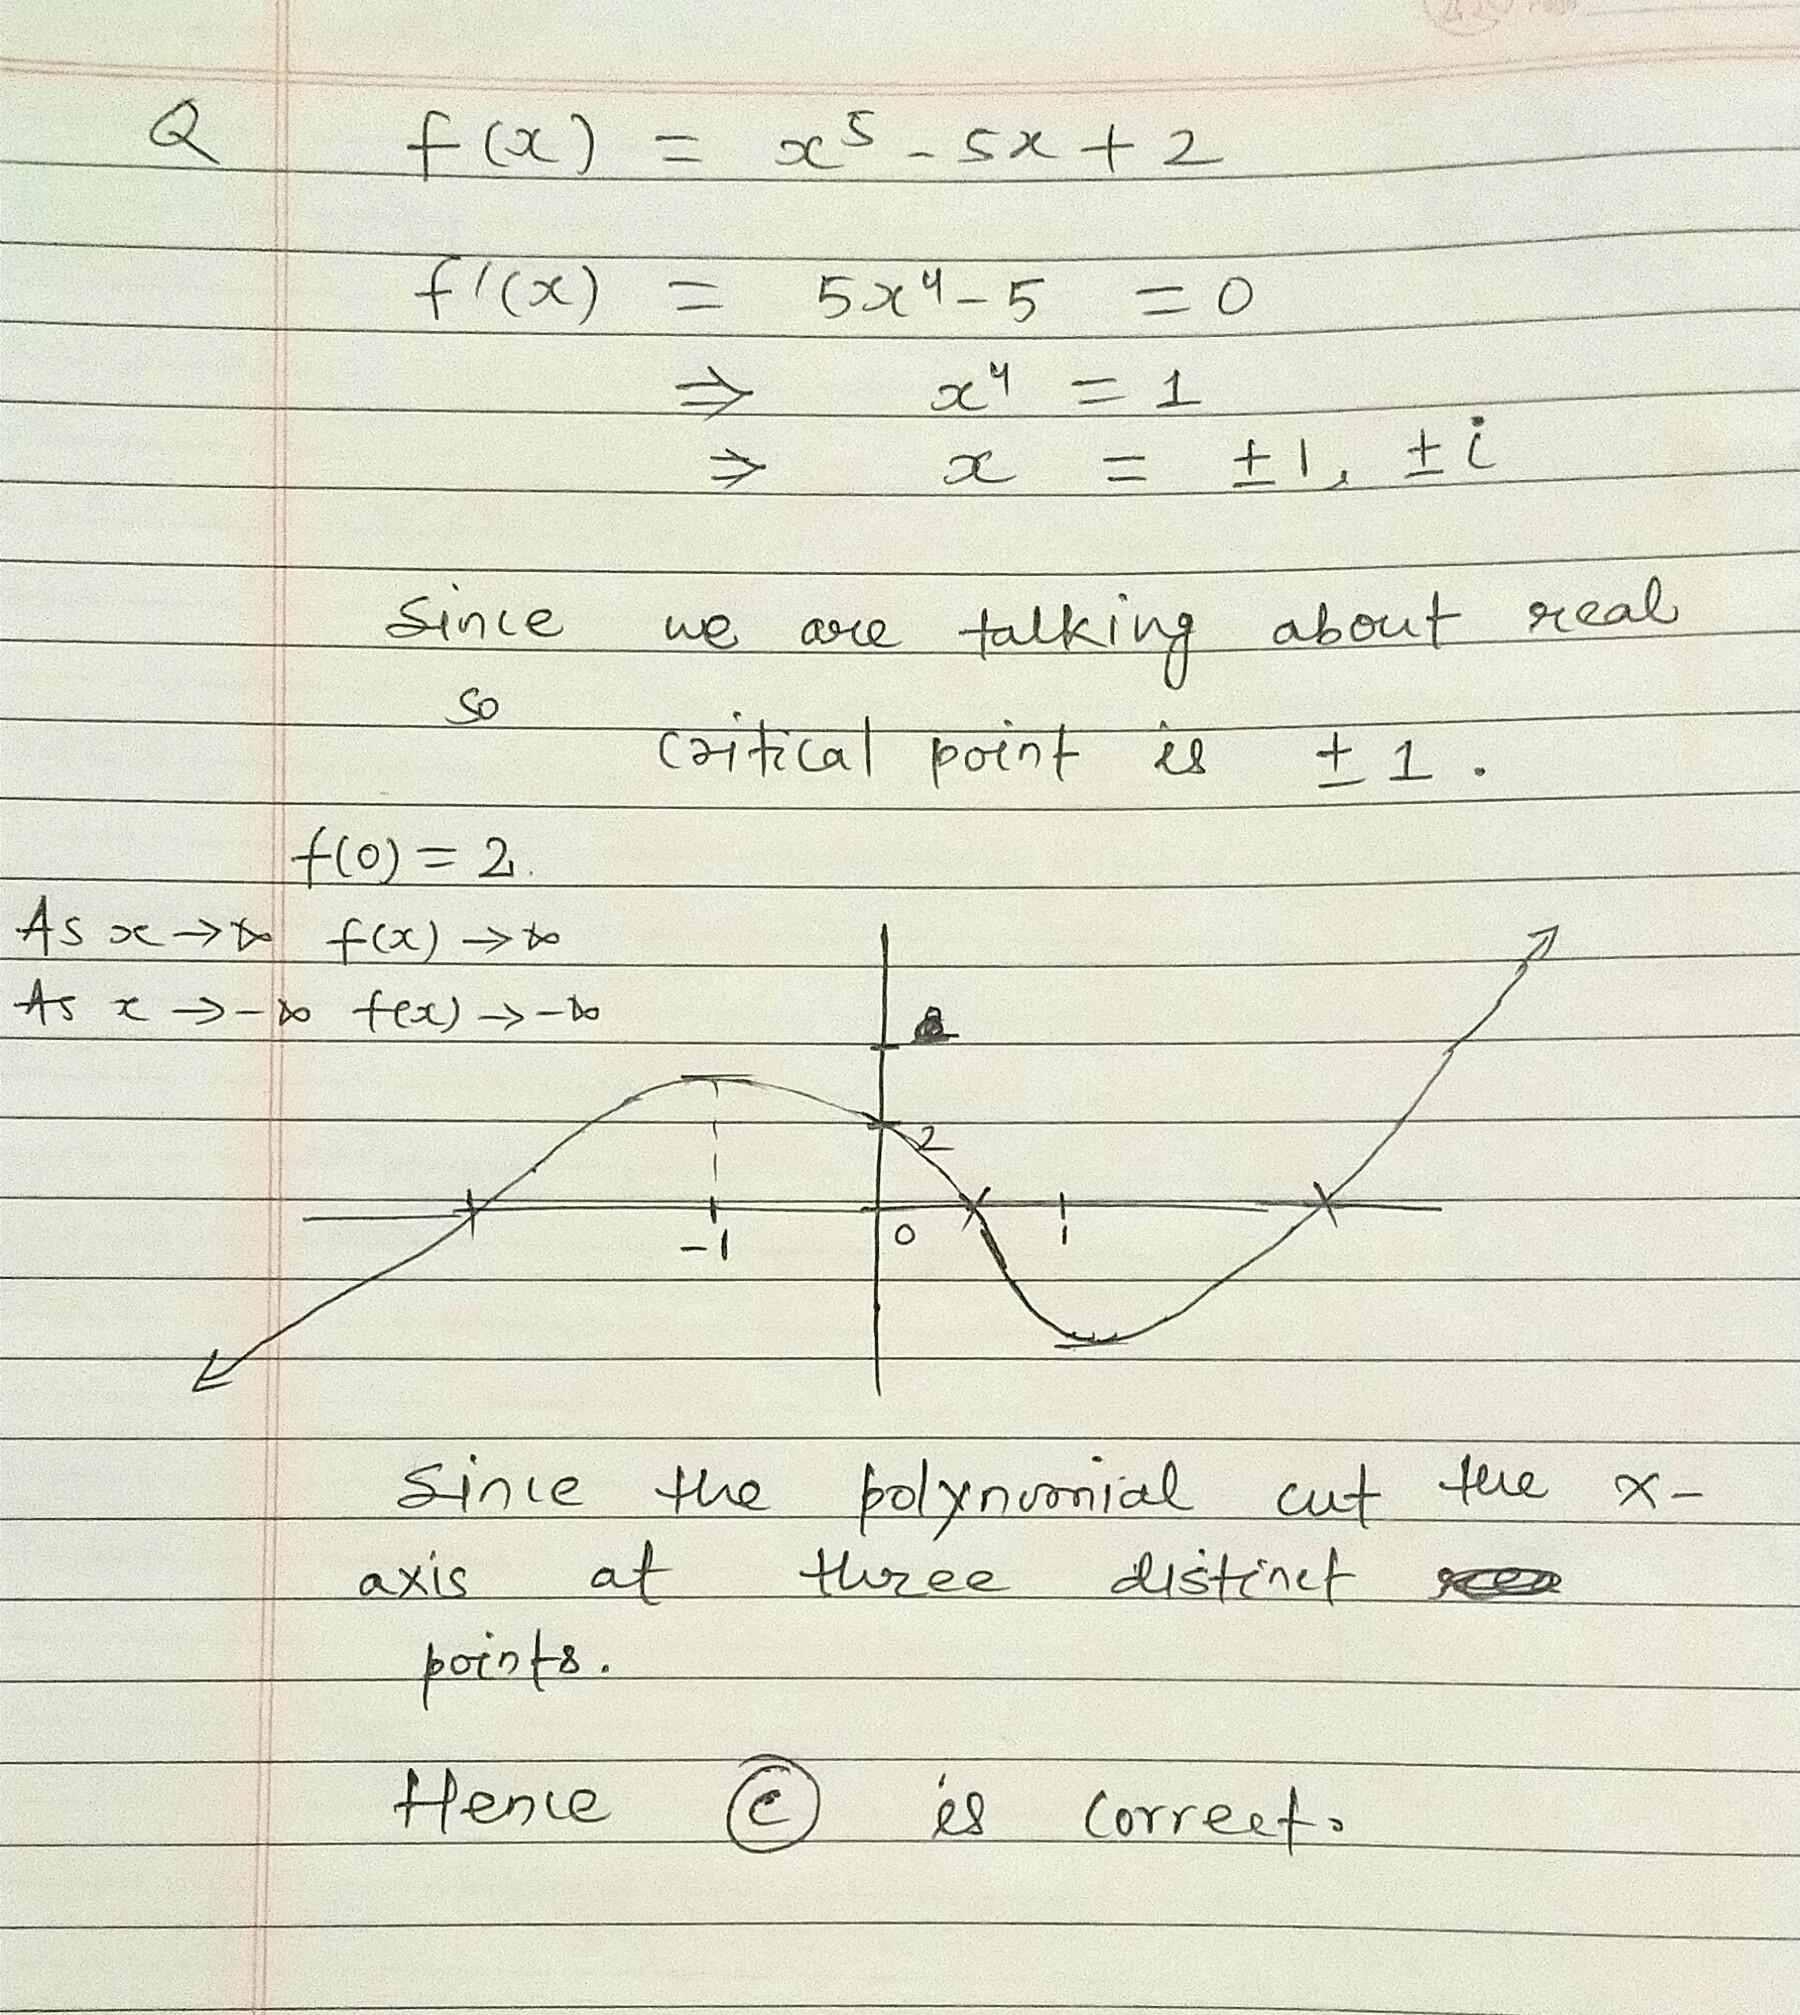 Q f(x) = x⁵ - 5x + 2
f'(x) = 5x⁴ - 5 = 0
⇒ x⁴ = 1
⇒ x = ±1, ±i
Since we are talking about real
so
critical point is ±1.
f(0) = 2.
As x → ∞ f(x) → ∞
As x → -∞ f(x) → -∞
2
-1 0 1
Since the polynomial cut the x-
axis at three distinct
points.
Hence Ⓒ is correct.